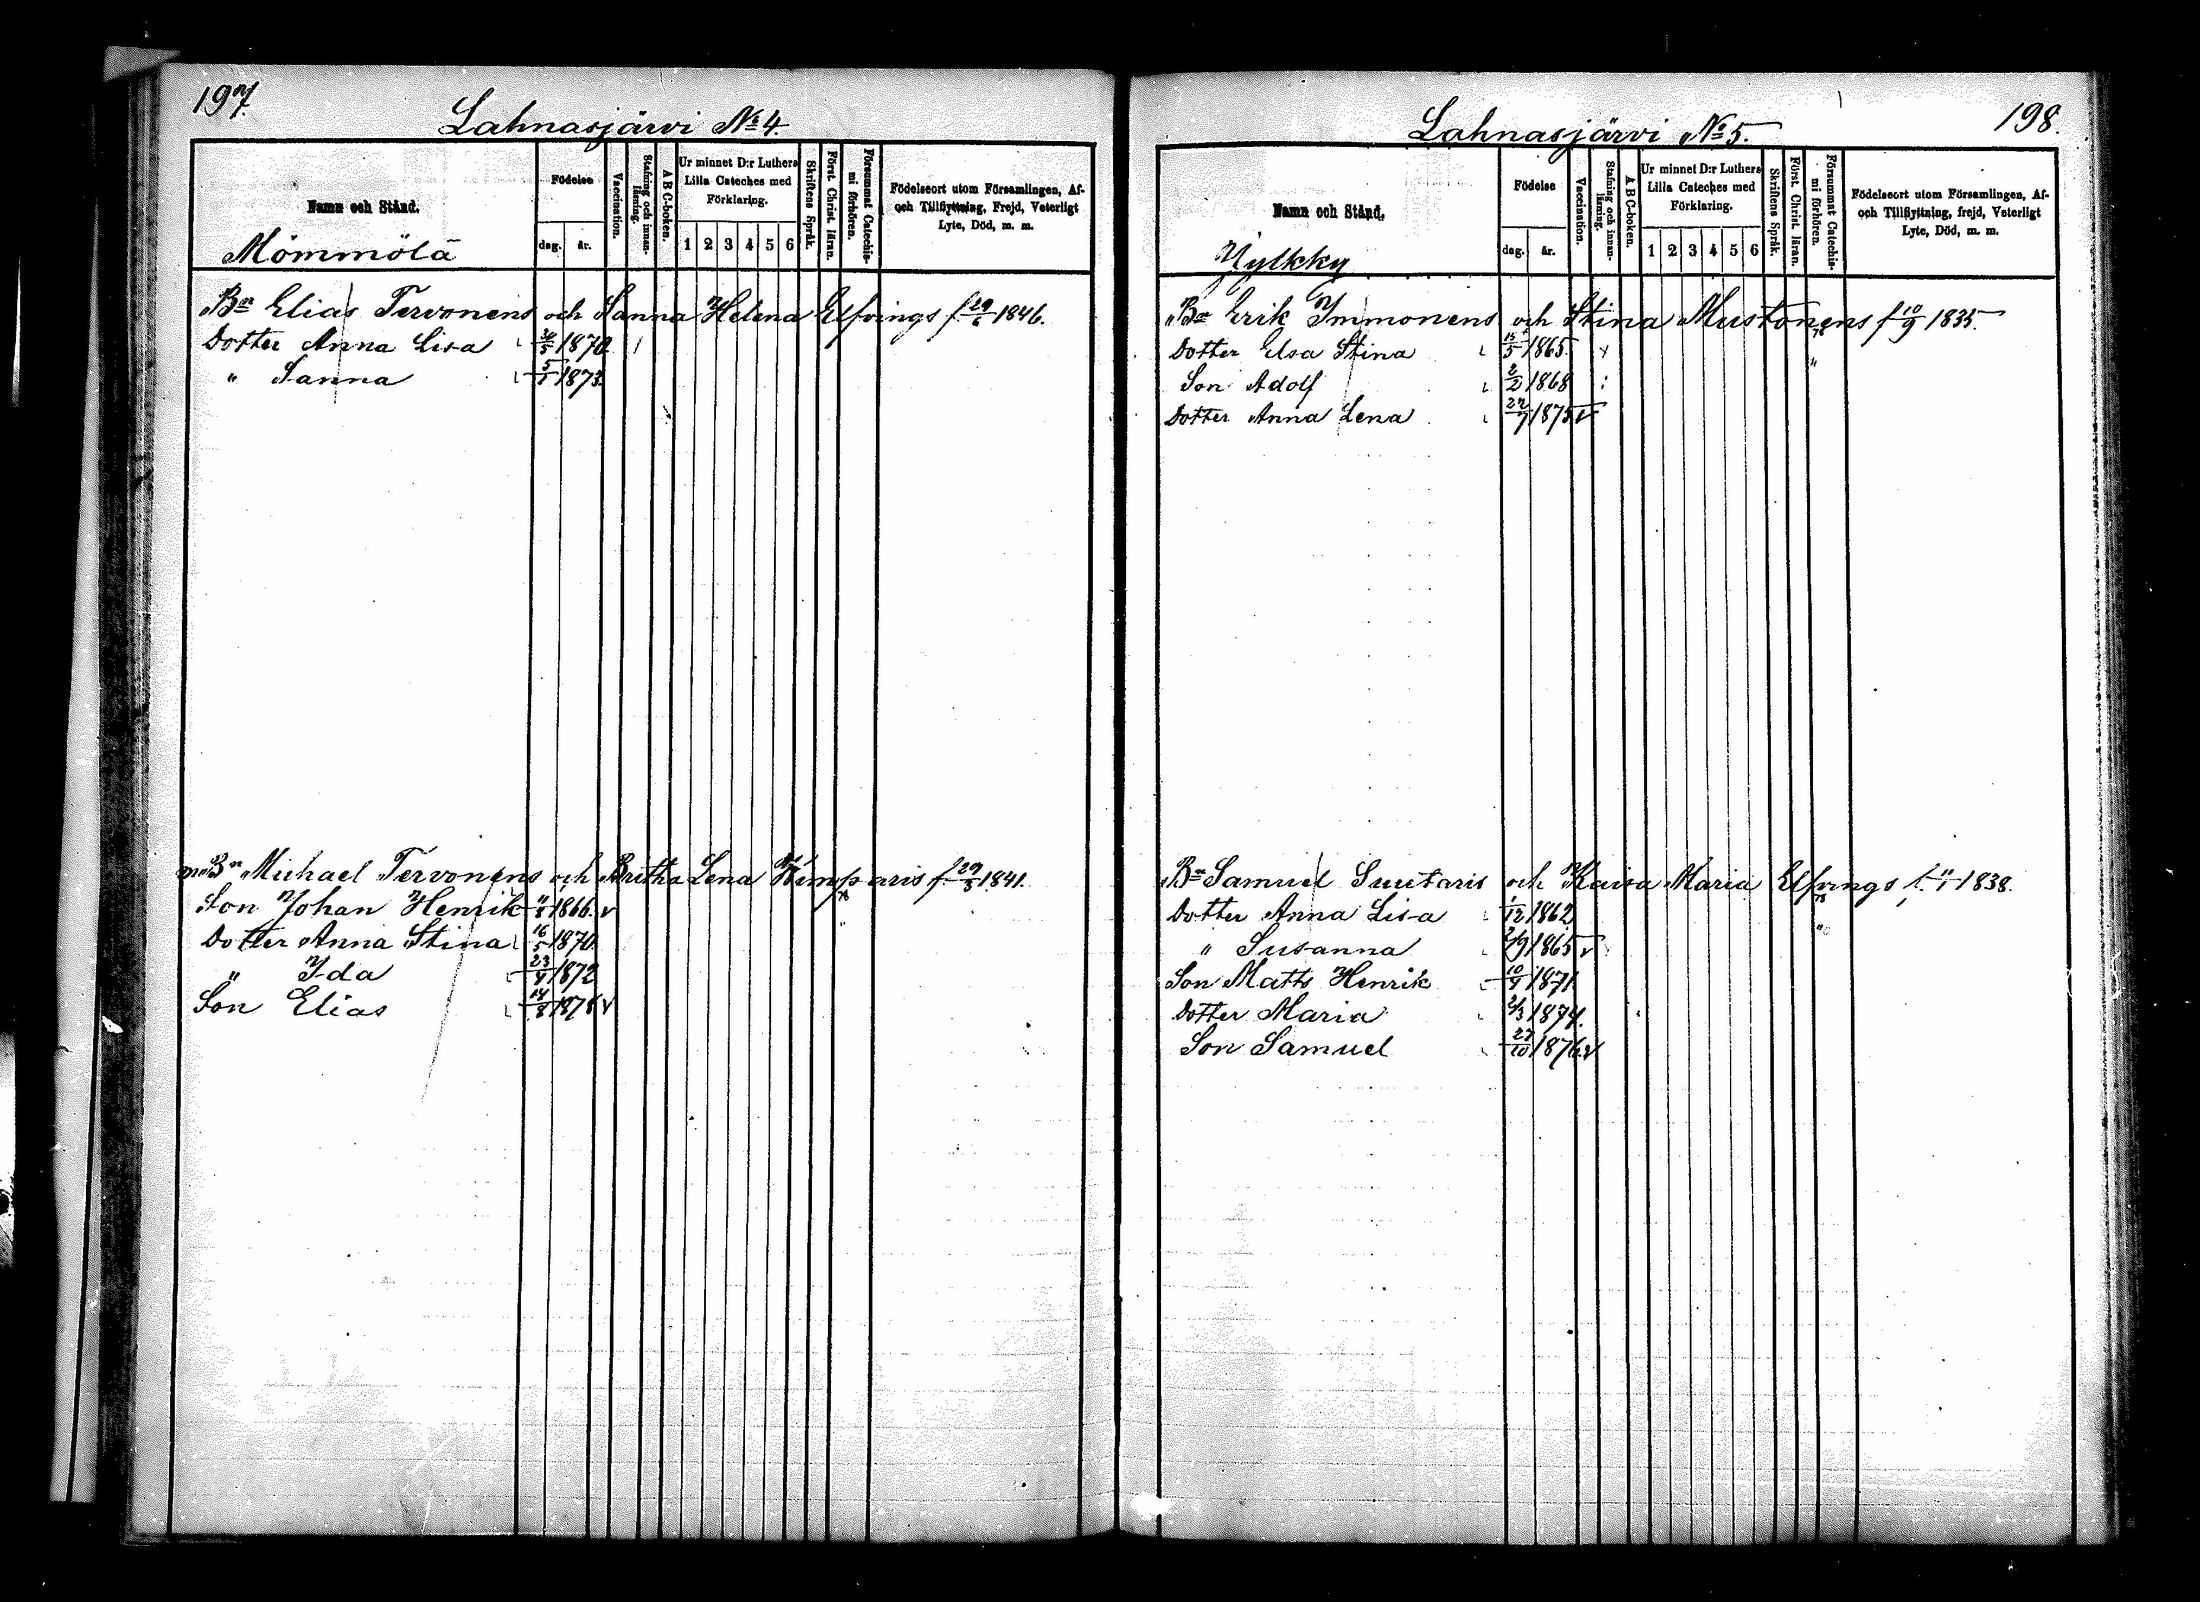 197.
Lahnasjärvi No 4.
Namn och Stånd.
Mömmölä
Födelse
dag. år.
Vaccination.
Stafning och innan-läsning.
A B C-boken.
Ur minnet D:r Luthers
Lilla Cateches med
Förklaring.
1 2 3 4 5 6
Skriftens Språk.
Först. Christ. läran.
Försummat Catechis-
mi förhören.
Födelseort utom Församlingen, Af-
och Tillflyttning, Frejd, Veterligt
Lyte, Död, m. m.
Bn Elias Tervonens och Sanna Helena Elfvings f. 29/6 1846.
Dotter Anna Lisa 1870
" Sanna 5/1 1873
Bn Michael Tervonens och Britha Lena Kimparis f. 29/5 1841.
Son Johan Henrik 1866. v
Dotter Anna Stina 16/5 1870
" Ida 23/9 1872
Son Elias 14/8 1878 v
198.
Lahnasjärvi No 5.
Namn och Stånd.
Nylkky
Födelse
dag. år.
Vaccination.
Stafning och innan-läsning.
A B C-boken.
Ur minnet D:r Luthers
Lilla Cateches med
Förklaring.
1 2 3 4 5 6
Skriftens Språk.
Först. Christ. läran.
Försummat Catechis-
mi förhören.
Födelseort utom Församlingen, Af-
och Tillflyttning, frejd, Veterligt
Lyte, Död, m. m.
Bn Erik Immonens och Stina Mustonens f 10/9 1835.
Dotter Elsa Stina 15/5 1865.
Son Adolf 2/2 1868
Dotter Anna Lena 27/7 1875 v
Bn Samuel Suutaris och Kaisa Maria Elfvings f. 11/1 1838.
Dotter Anna Lisa 1/12 1862
" Susanna 2/9 1865 v
Son Matts Henrik 10/9 1871
Dotter Maria 2/3 1874.
Son Samuel 27/10 1876. v